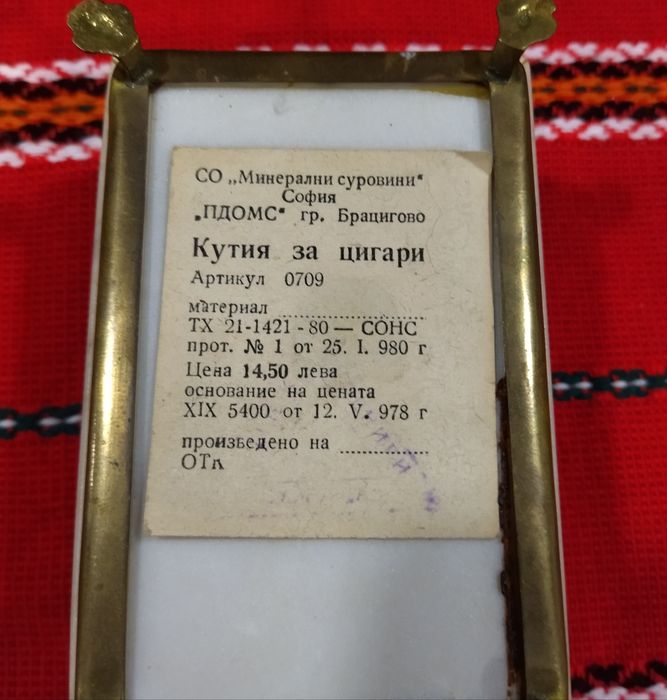 СО „Минерални суровини"
София
„ПДОМС" гр. Брацигово
Кутия за цигари
Артикул 0709
материал
ТХ 21-1421-80 — СОНС
прот. № 1 от 25. I. 980 г
Цена 14,50 лева
основание на цената
XIX 5400 от 12. V. 978 г
произведено на
ОТк